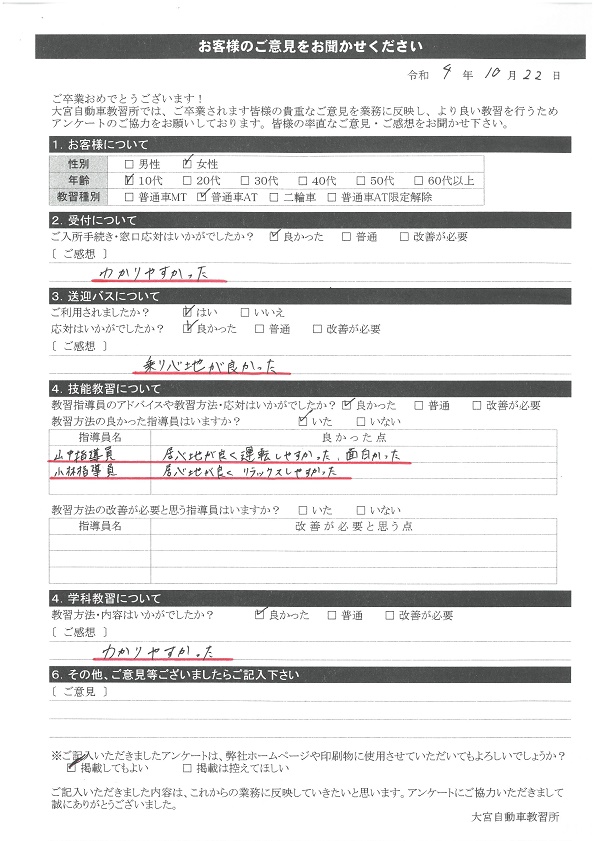 お客様のご意見をお聞かせください
令和 4 年 10 月 22 日
ご卒業おめでとうございます！
大宮自動車教習所では、ご卒業されます皆様の貴重なご意見を業務に反映し、より良い教習を行うため
アンケートのご協力をお願いしております。皆様の率直なご意見・ご感想をお聞かせ下さい。
1. お客様について
性別 □ 男性 ☑ 女性
年齢 ☑ 10代 □ 20代 □ 30代 □ 40代 □ 50代 □ 60代以上
教習種別 □ 普通車MT ☑ 普通車AT □ 二輪車 □ 普通車AT限定解除
2. 受付について
ご入所手続き・窓口応対はいかがでしたか？ ☑ 良かった □ 普通 □ 改善が必要
〔 ご感想 〕
わかりやすかった
3. 送迎バスについて
ご利用されましたか？ ☑ はい □ いいえ
応対はいかがでしたか？ ☑ 良かった □ 普通 □ 改善が必要
〔 ご感想 〕
乗り心地が良かった
4. 技能教習について
教習指導員のアドバイスや教習方法・応対はいかがでしたか？ ☑ 良かった □ 普通 □ 改善が必要
教習方法の良かった指導員はいますか？ ☑ いた □ いない
指導員名 良かった点
山中指導員 居心地が良く運転しやすかった、面白かった
小林指導員 居心地が良く リラックスしやすかった
教習方法の改善が必要と思う指導員はいますか？ □ いた □ いない
指導員名 改善が必要と思う点
4. 学科教習について
教習方法・内容はいかがでしたか？ ☑ 良かった □ 普通 □ 改善が必要
〔 ご感想 〕
わかりやすかった
6. その他、ご意見等ございましたらご記入下さい
〔 ご意見 〕
※ご記入いただきましたアンケートは、弊社ホームページや印刷物に使用させていただいてもよろしいでしょうか？
☑ 掲載してもよい □ 掲載は控えてほしい
ご記入いただきました内容は、これからの業務に反映していきたいと思います。アンケートにご協力いただきまして
誠にありがとうございました。
大宮自動車教習所